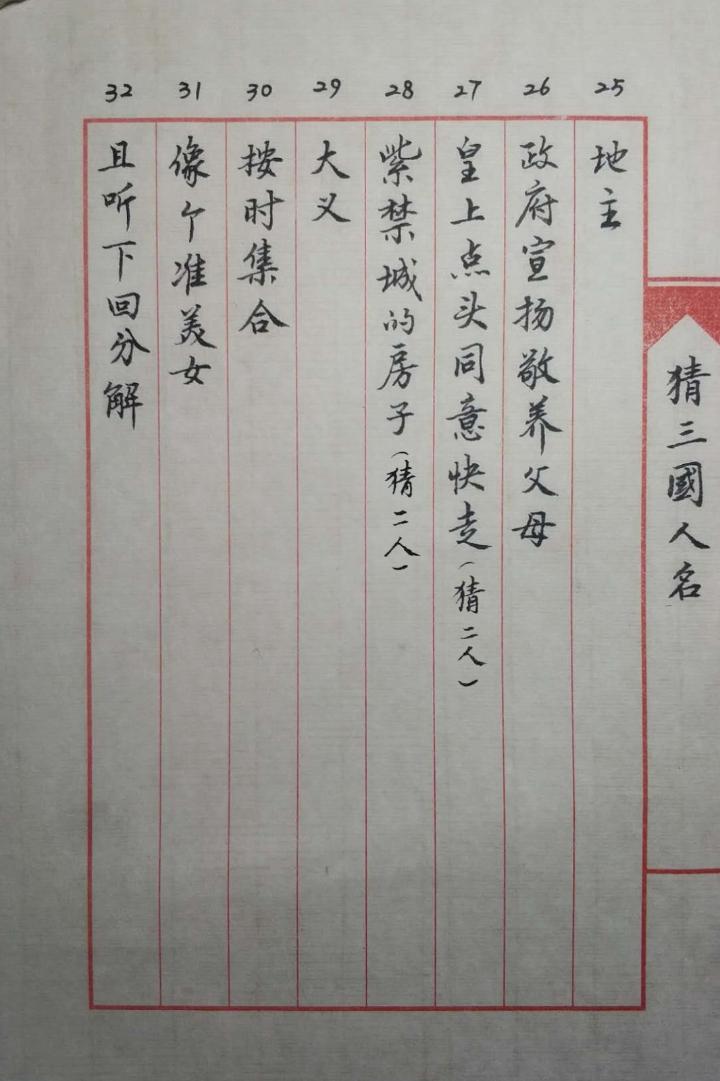 猜三國人名
25
地主
26
政府宣扬敬养父母
27
皇上点头同意快走（猜二人）
28
紫禁城的房子（猜二人）
29
大义
30
按时集合
31
像个准美女
32
且听下回分解